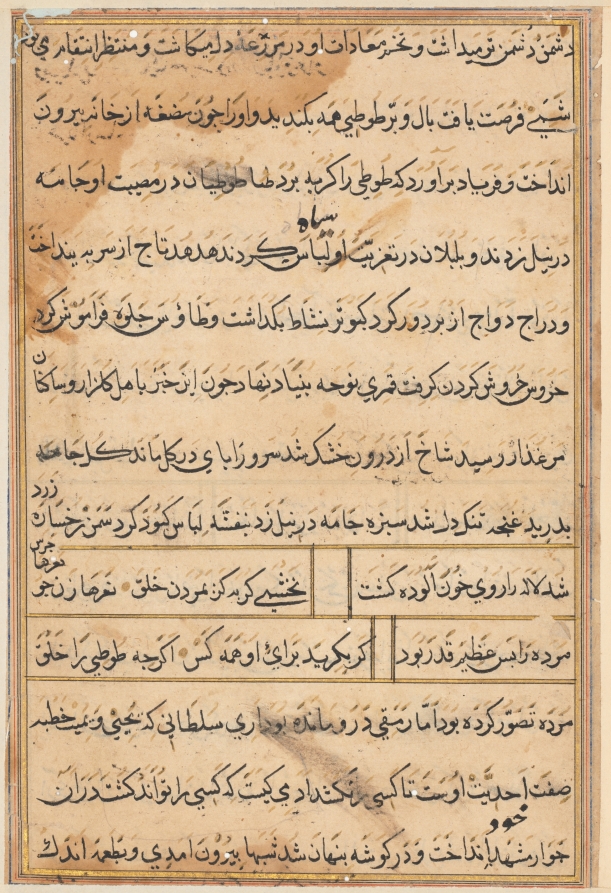 دشمن دشمن ترمیداشت و تخم معادات او در مزرعهٔ دل میکاشت و منتظر انتقام می
شبی فرصت یافت بال و پر طوطی همه بکندید و او را چون مضغه از خانه بیرون
انداخت و فریاد برآورد که طوطی را گربه برد طوطیان در مصیبت او جامه
در نیل زدند و بلبلان در تعزیت او لباس سیاه کردند هدهد تاج از سر بینداخت
و دراج دواج از بر دور کرد کبوتر نشاط بکذاشت و طاؤس جلوه فراموش کرد
خروس خروش کردن کرفت قمری نوحه بنیاد نهاد چون این خبر باهل کلزار و ساکنان
مرغزار رسید شاخ از درون خشک شد سرو را پای در کل ماند کل جامه
بدرید غنچه تنک دل شد سبزه جامه در نیل زد بنفشه لباس کبود کرد سمن رخساره زرد
شد لاله را روی خون آلوده کشت نخشبی کریه کن بمردن خلق نعرها زن چو
مرده را بس عظیم قدر بود کر بکریید برای او همه کس اکرچه طوطی را خلق
مرده تصور کرده بود اما رمقی در و مانده بود اری سلطانی که یحیی و یمیت خطبه
صفت احدیت اوست تا کسی را نکشد ادمی کیست که کسی را تواند کشت در ان
جوار مشهد بود خود را انداخت و در کوشه پنهان شد شبها بیرون امدی و بطعمه اندک